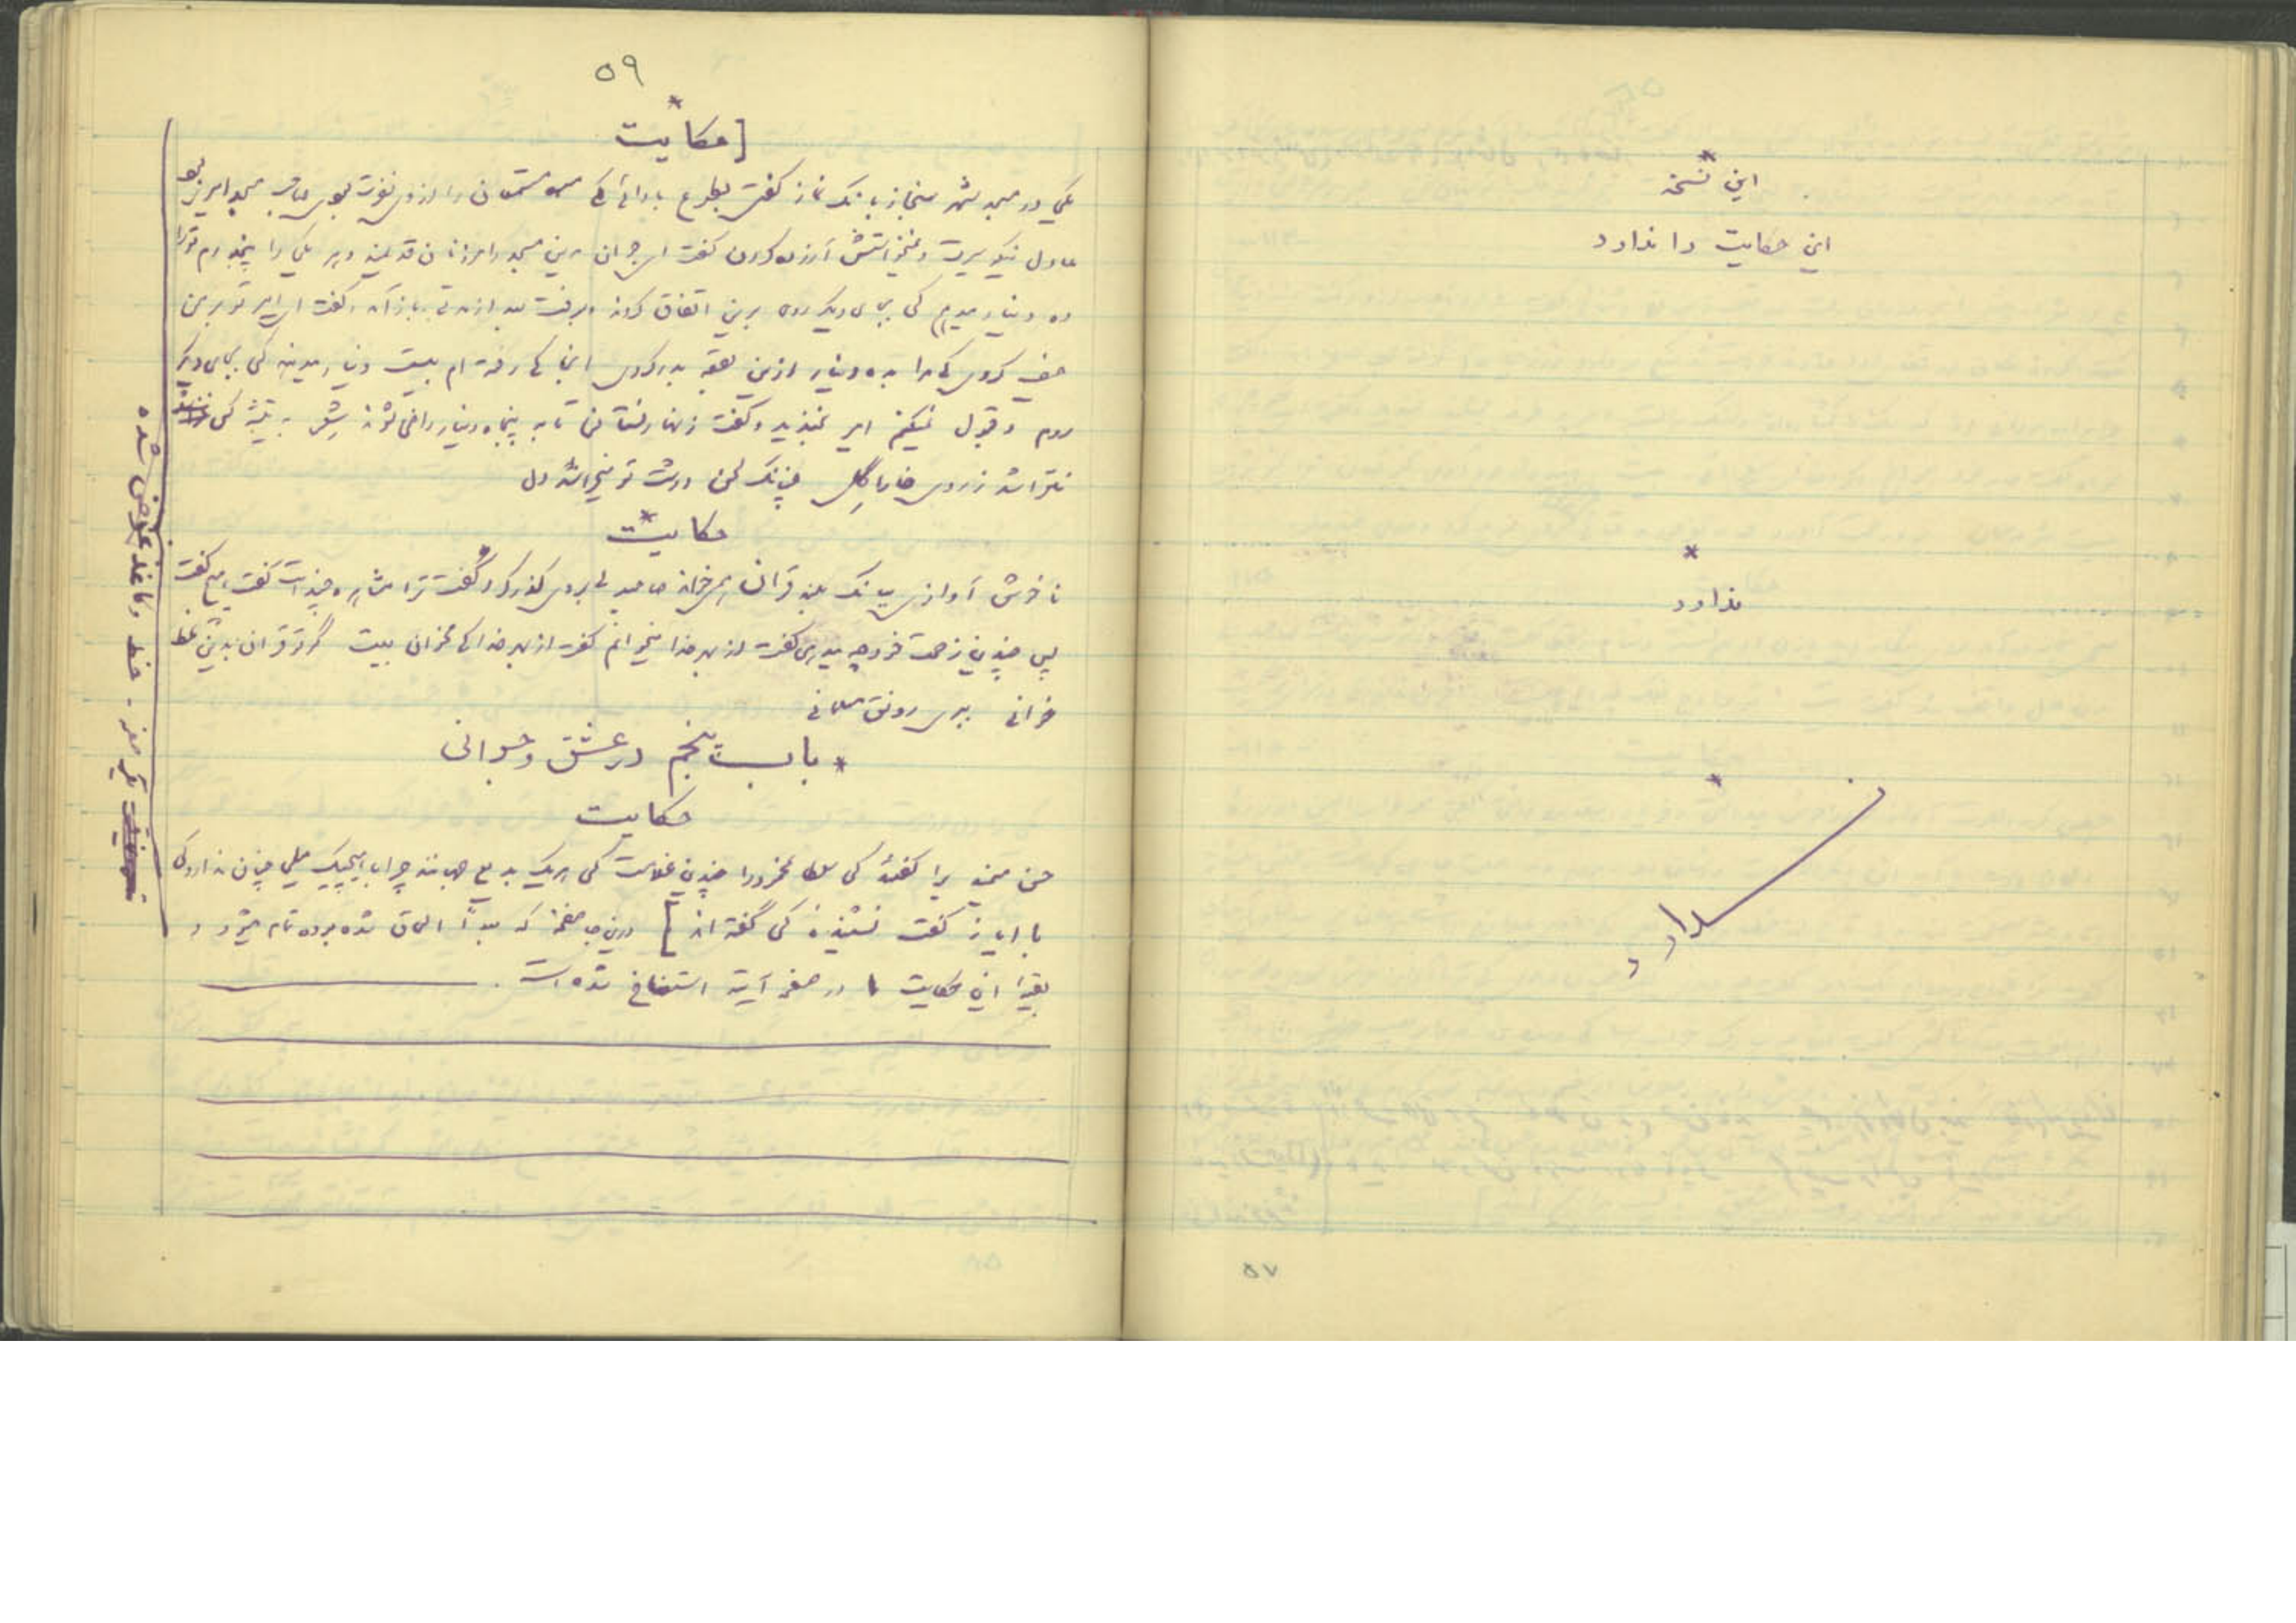 این نسخه
این حکایت را ندارد
ندارد
ندارد
۵۷
۵۹
[حکایت
یکی در مسجد سنجار بانگ نماز گفتی بطوع بادائی کی مستمعان را ازوی نفرت بودی صاحب مسجد امیری بود
عادل نیکو سیرت و نمیخواستش آزرده کردن گفت ای جوان مرین مسجد را مؤذنان قدیمند و هر یکی را پنج دینار
ده دینار میدهم کی بجای دیگر روی برین اتفاق کردند و برفت بعد از مدتی باز آمد و گفت ای امیر تو بر من
حیف کردی کی مرا به ده دینار ازین بقعه بدر کردی اینجا کی رفته ام بیست دینار میدهند کی بجای دیگر
روم و قبول نمیکنم امیر بخندید و گفت زنهار نستانی تا به پنجاه دینار راضی شوند شعر به تیشه کس
نخراشد ز روی خارا گل چنانک لحن درشت تو میخراشد دل
حکایت
ناخوش آوازی ببانک بلند قرآن همی خواند صاحبدلی بروی گذر کرد و گفت ترا مشاهره چندست گفت هیچ گفت
پس چندین زحمت خود چه میدهی گفت از بهر خدا میخوانم گفت از بهر خدا کی مخوان بیت گر تو قرآن بدین نمط
خوانی ببری رونق مسلمانی
* باب پنجم در عشق و جوانی
حکایت
حسن میمندی را گفتند کی سلطان محمود را چندین غلامست کی هر یک بدیع جهانند چرا با هیچیک میلی چنان ندارد کی
با ایاز گفت نشنیده‌ئی کی گفته اند] درین جا صفحه‌ای که بعداً الحاق شده بوده تمام میشود و
بقیهٔ این حکایت در صفحهٔ آینه استنساخ شده است.
یک صفحه - خط و کاغذ عوض شده